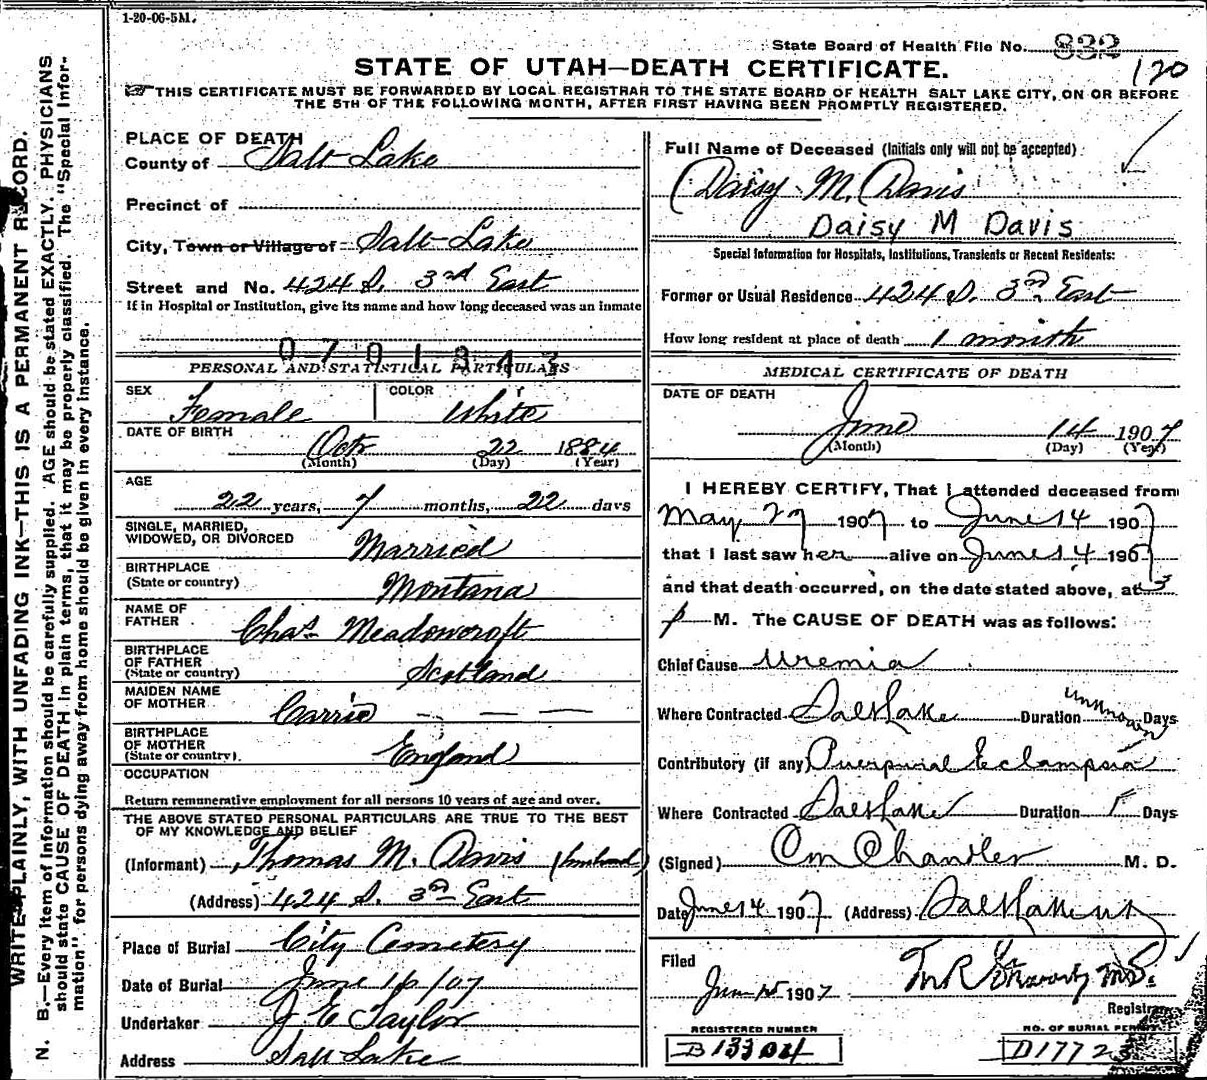 1-20-06-5M.
State Board of Health File No. 832
120
STATE OF UTAH—DEATH CERTIFICATE.
THIS CERTIFICATE MUST BE FORWARDED BY LOCAL REGISTRAR TO THE STATE BOARD OF HEALTH SALT LAKE CITY, ON OR BEFORE
THE 5TH OF THE FOLLOWING MONTH, AFTER FIRST HAVING BEEN PROMPTLY REGISTERED.
WRITE PLAINLY, WITH UNFADING INK—THIS IS A PERMANENT RECORD.
N. B.—Every item of information should be carefully supplied. AGE should be stated EXACTLY. PHYSICIANS
should state CAUSE OF DEATH in plain terms, that it may be properly classified. The "Special Infor-
mation" for persons dying away from home should be given in every instance.
PLACE OF DEATH
County of Salt Lake
Precinct of
City, Town or Village of Salt Lake
Street and No. 424 S. 3rd East
If in Hospital or Institution, give its name and how long deceased was an inmate
0701343
PERSONAL AND STATISTICAL PARTICULARS
SEX Female COLOR White
DATE OF BIRTH Oct 22 1884
(Month) (Day) (Year)
AGE
22 years, 7 months, 22 days
SINGLE, MARRIED,
WIDOWED, OR DIVORCED Married
BIRTHPLACE
(State or country) Montana
NAME OF
FATHER Chas. Meadowcroft
BIRTHPLACE
OF FATHER
(State or country) Scotland
MAIDEN NAME
OF MOTHER Carrie — — —
BIRTHPLACE
OF MOTHER
(State or country). England
OCCUPATION
Return remunerative employment for all persons 10 years of age and over.
THE ABOVE STATED PERSONAL PARTICULARS ARE TRUE TO THE BEST
OF MY KNOWLEDGE AND BELIEF
(Informant) Thomas M. Davis (husband)
(Address) 424 S. 3rd East
Place of Burial City Cemetery
Date of Burial June 16/07
Undertaker J E Taylor
Address Salt Lake
Full Name of Deceased (Initials only will not be accepted)
Daisy M. Davis
Daisy M Davis
Special Information for Hospitals, Institutions, Transients or Recent Residents:
Former or Usual Residence 424 S. 3rd East
How long resident at place of death 1 month
MEDICAL CERTIFICATE OF DEATH
DATE OF DEATH
June 14 1907
(Month) (Day) (Year)
I HEREBY CERTIFY, That I attended deceased from
May 27 1907 to June 14 1907
that I last saw her alive on June 14 1907
and that death occurred, on the date stated above, at 3
p M. The CAUSE OF DEATH was as follows:
Chief Cause Uremia
Where Contracted Salt Lake Duration unknown Days
Contributory (if any) Puerpiral Eclampsia
Where Contracted Salt Lake Duration 1 Days
(Signed) Om Chandler M. D.
Date June 14 1907 (Address)
Filed
Jun 15 1907
Registrar
REGISTERED NUMBER
B13304
NO. OF BURIAL PERMIT
D17723